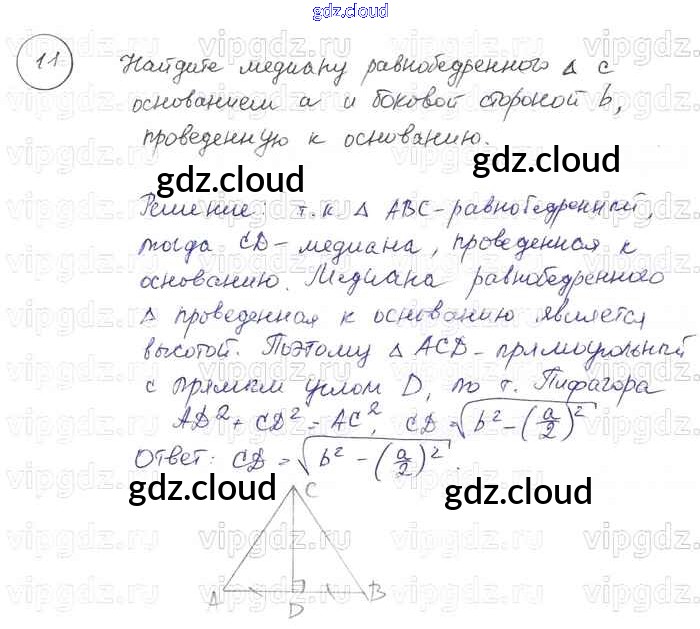 gdz.cloud
11
Найдите медиану равнобедренного Δ с
основанием a и боковой стороной b,
проведенную к основанию.
gdz.cloud gdz.cloud
Решение: т.к. Δ ABC - равнобедренный,
тогда CD - медиана, проведенная к
основанию. Медиана равнобедренного
Δ проведенная к основанию является
высотой. Поэтому Δ ACD - прямоугольный
с прямым углом D, по т. Пифагора
AD² + CD² = AC², CD = √(b² - (a/2)²)
Ответ: CD = √(b² - (a/2)²).
gdz.cloud gdz.cloud
C
A D B
vipgdz.ru